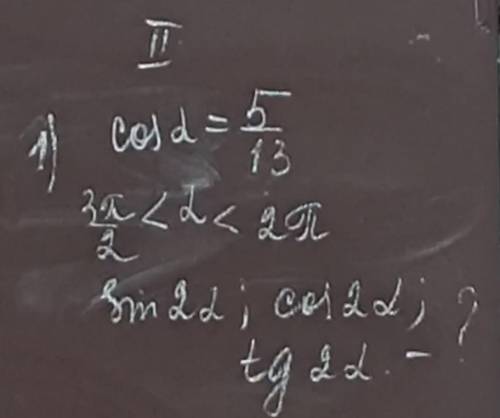 II
1) cos α = 5/13
3π/2 < α < 2π
sin 2α ; cos 2α ;
tg 2α. - ?